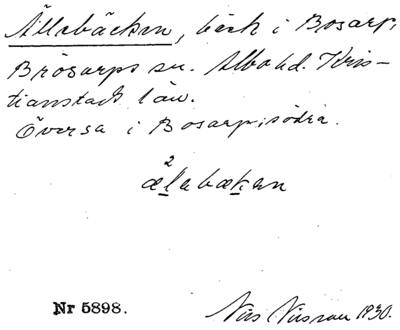 Ällabäcken, bäck i Bosarp,
Brösarps sn. Albo hd. Kris-
tianstads län.
Översa i Bosarp; södra.
2
ælabækan
Nr 5898.
Nils Nilsson 1930.